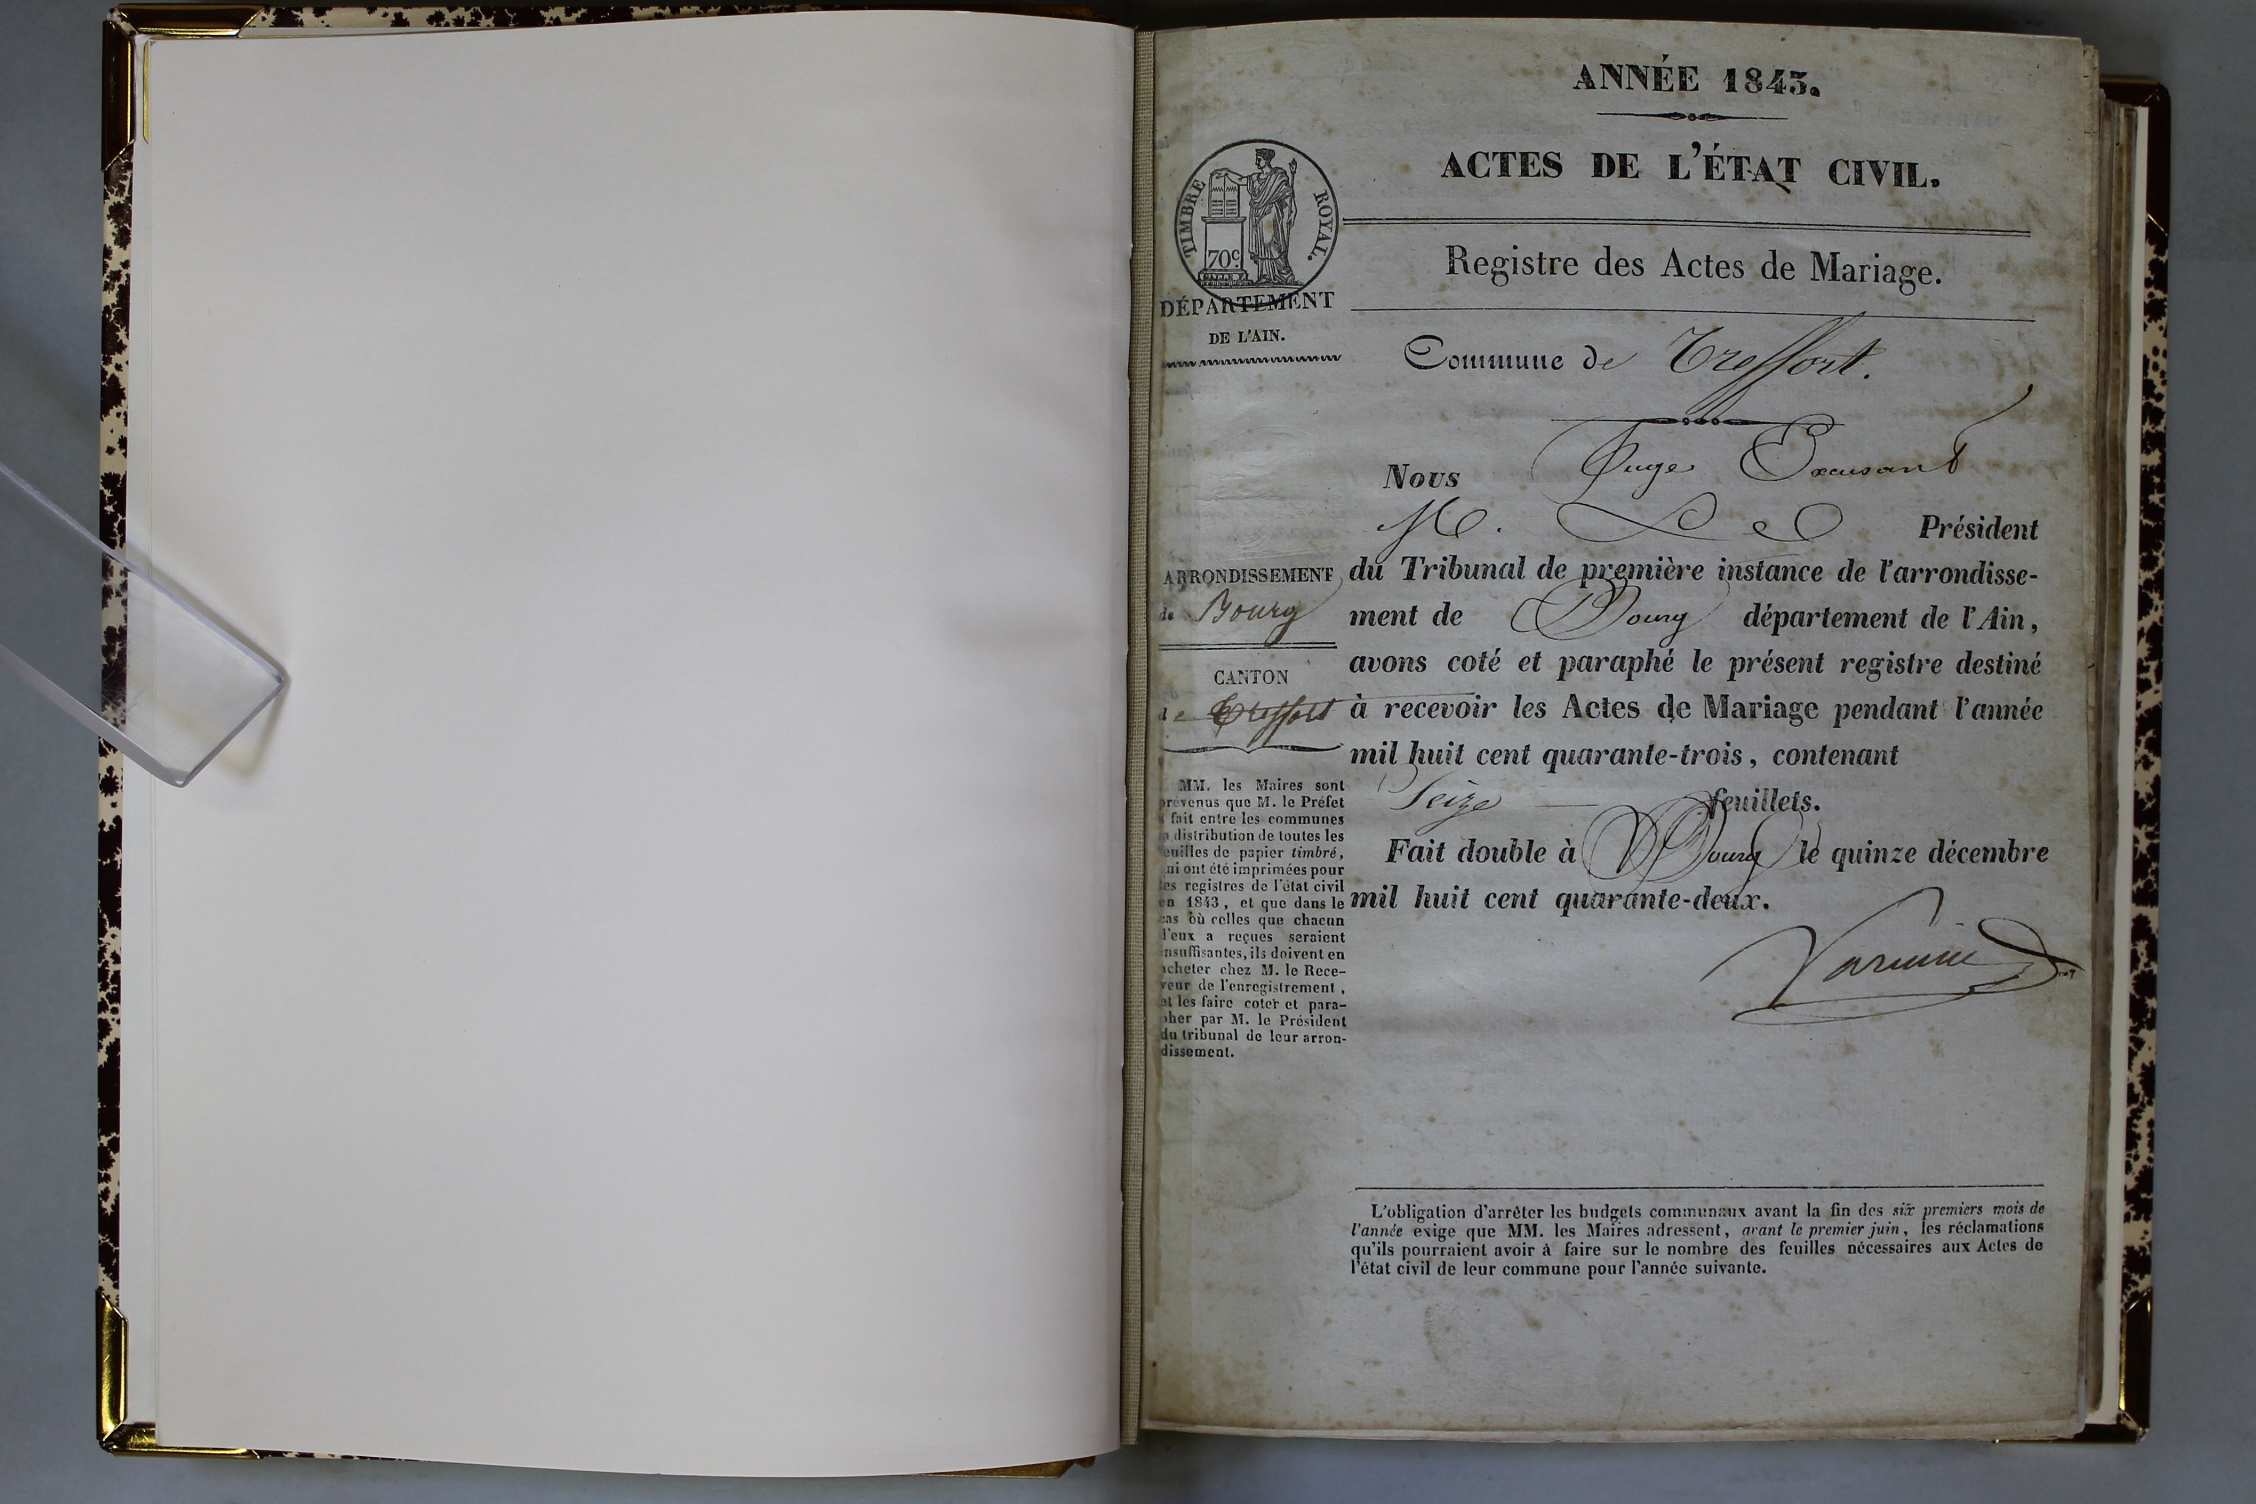 ANNÉE 1843.
ACTES DE L'ÉTAT CIVIL.
TIMBRE ROYAL.
70c.
Registre des Actes de Mariage.
DÉPARTEMENT
DE L'AIN.
Commune de Treffort.
ARRONDISSEMENT
de Bourg
CANTON
de Treffort
MM. les Maires sont
prévenus que M. le Préfet
a fait entre les communes
la distribution de toutes les
feuilles de papier timbré,
qui ont été imprimées pour
les registres de l'état civil
en 1843, et que dans le
cas où celles que chacun
d'eux a reçues seraient
insuffisantes, ils doivent en
acheter chez M. le Rece-
veur de l'enregistrement,
et les faire coter et para-
pher par M. le Président
du tribunal de leur arron-
dissement.
Nous Juge Excusant
M. Le Président
du Tribunal de première instance de l'arrondisse-
ment de Bourg département de l'Ain,
avons coté et paraphé le présent registre destiné
à recevoir les Actes de Mariage pendant l'année
mil huit cent quarante-trois, contenant
Seize feuillets.
Fait double à Bourg le quinze décembre
mil huit cent quarante-deux.
L'obligation d'arrêter les budgets communaux avant la fin des six premiers mois de
l'année exige que MM. les Maires adressent, avant le premier juin, les réclamations
qu'ils pourraient avoir à faire sur le nombre des feuilles nécessaires aux Actes de
l'état civil de leur commune pour l'année suivante.